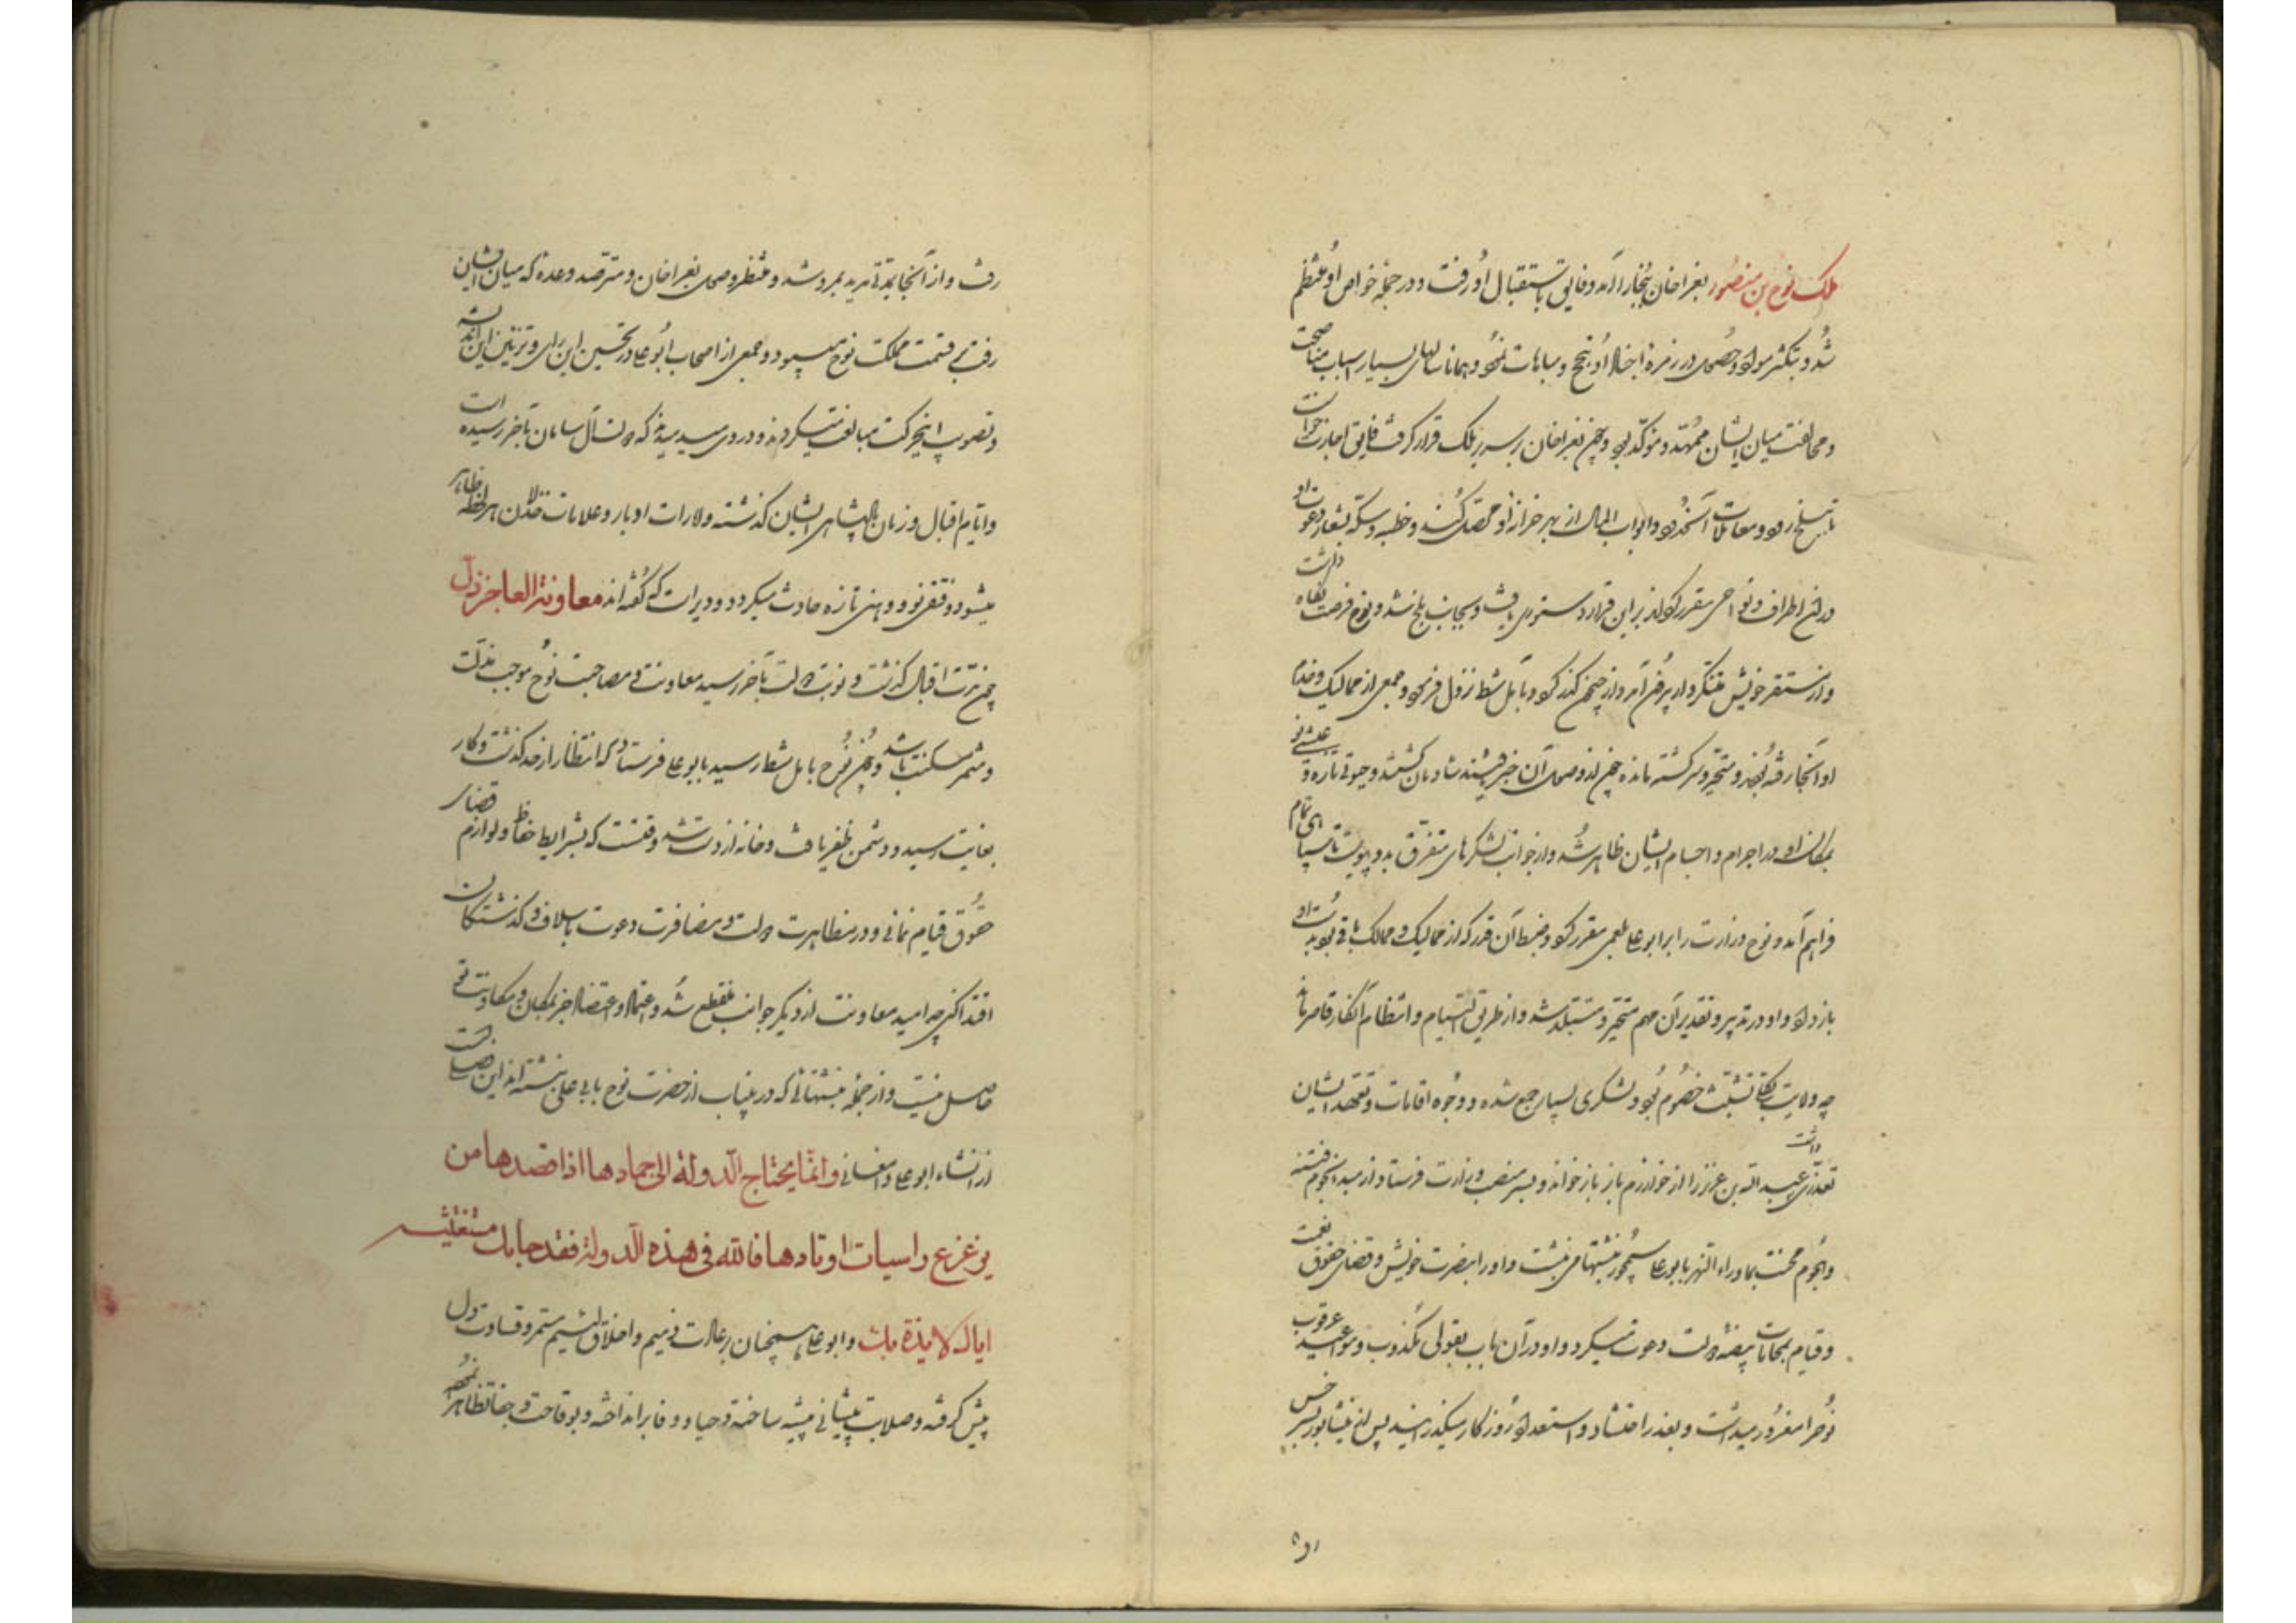 ملک نوح بن منصور بغراخان ببخارا آمد و فایق باستقبال او رفت و در جمله خواص او منتظم
شد و بتکثیر سواد و حضور در زمره اخلا او تبجح و مباهات نمود و همانا سالهای بسیار اسباب مناصحت
و مخالفت میان ایشان ممهد و مؤکد بود و چون بغراخان بر سریر ملک قرار گرفت فایق اجازت خواست
تا ببلخ رود و معاملات آن حدود و ابواب المال از بهر خزانه او محصل کند و خطبه و سکه بشعار دعوت او
در آن اطراف و نواحی مقرر گرداند بر این قرار دستوری یافت و بجانب بلخ شد و نوح فرصت نگاه داشت
و از مستقر خویش متنکروار بیرون آمد و از جیحون گذر کرد و بآمل شط نزول فرمود و جمعی از ممالیک و خدام
او آنجا رفته بودند و متحیر و سرگشته مانده چون از وصول آن خبر شنیدند شادمان گشتند و حیوتی تازه و عیشی نو
بمکان او در اجرام و اجسام ایشان ظاهر شد و از جوانب لشکرهای متفرق بدو پیوست تا سپاهی تمام
فراهم آمد و نوح وزارت را بر ابوعلی بلعمی مقرر کرد و ضبط آن قدر که از ممالیک و ممالک باقی بود بدست او
باز داد و او در تدبیر و تقدیر آن مهم متحیر و متبلد شد و از طریق التیام و انتظام آن کار قاصر ماند
چه ولایت بکلی تشبث خصوم بود و لشکری بسیار جمع شده و وجوه اقامات و تعهد ایشان
تعذری داشت عبدالله بن عزیز را از خوارزم باز خواند و بسر منصب وزارت فرستاد از مبدا نجوم فتنه
و هجوم محنت بماوراء النهر بابوعلی سیمجور نبشتها می نبشت و او را بنصرت خویش و قضای حقوق نعمت
و قیام بمحامات بیضه دولت دعوت میکرد و او در آن باب بقولی مکذوب و مواعید عرقوب
نوح را مغرور میداشت و بعذر احتشاد و استعداد روزگار میگذرانید پس از نیشابور بسرخس
رفت و از آنجا بتدریج بمرو شد و منتظر وصول بغراخان و مترصد وعده که میان ایشان
رفت بر قسمت مملکت نوح میبود و جمعی از اصحاب ابوعلی در تحسین این رای و تزیین این اندیشه
و تصویب این حرکت مبالغت میکردند و در وی میدمیدند که دولت آل سامان بآخر رسیده است
و ایام اقبال و زمان پادشاهی ایشان گذشته و امارات ادبار و علامات خذلان هر لحظه ظاهر
میشود و فتقی نو و وهنی تازه حادث میگردد و دیر است که گفته اند معاونة العاجز ذل
چون مدت اقبال گذشت و نوبت دولت بآخر رسید معاونت و مصاحبت نوح موجب مذلت
و مثمر مسکنت باشد و چون نوح بآمل شط رسید بابوعلی فرستاد که انتظار از حد گذشت و کار
بغایت رسید و دشمن ظفر یافت و خانه از دست شد وقتست که بشرایط حفاظ و لوازم قضای
حقوق قیام نمائی و در مظاهرت دولت و مضافرت دعوت باسلاف و گذشتگان
اقتدا کنی چه امید معاونت از دیگر جوانب منقطع شد و اعتماد و اعتضاد جز بمکان و مکاوحت تو
حاصل نیست و از جمله نبشتهائی که در این باب از حضرت نوح بابی علی نبشته اند این فصل است
از انشاء ابوعلی دامغانی وانما یحتاج الدولة الی عمادها اذا قصدها من
یزعزع راسیات اوتادها فالله فی هذه الدولة فقد جاءتک مستغیثة
ایاک لایذة بک و ابوعلی همچنان بر عادت ذمیم و اخلاق لئیم مستمر و قساوت دل
پیش گرفته و صلابت پیشانی پیشه ساخته و حیا و وفا برانداخته و بوقاحت و جفا تظاهر نموده